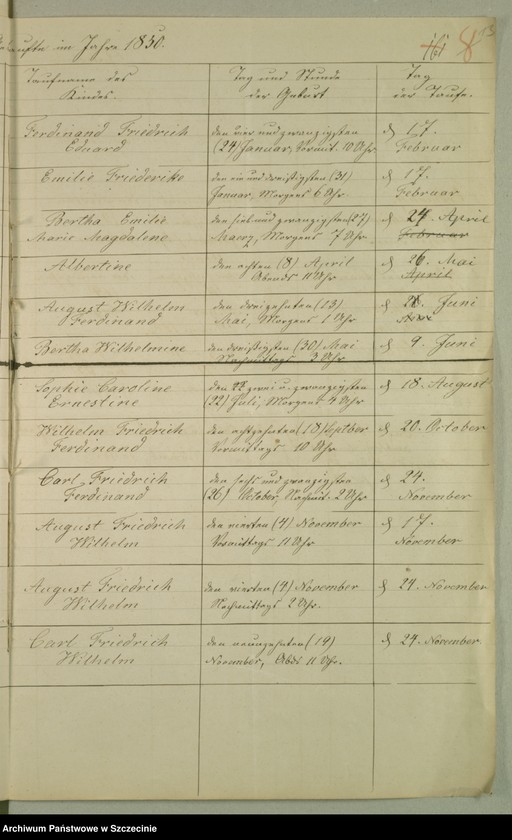 Getaufte im Jahre 1850.
161 8
Taufname des Kindes.
Tag und Stunde der Geburt
Tag der Taufe.
Ferdinand Friedrich
Eduard
den vier und zwanzigsten
(24) Januar, Vormit. 10 Uhr
d 17.
Februar
Emilie Friederike
den ein und dreißigsten (31)
Januar, Morgens 6 Uhr
d 17.
Februar
Bertha Emilie
Marie Magdalene
den sieben und zwanzigsten (27)
Maerz, Morgens 7 Uhr
d 24 April
Februar
Albertine
den achten (8) April
Abends 11 Uhr
d 26. Mai
April
August Wilhelm
Ferdinand
den dreizehnten (13)
Mai, Morgens 1 Uhr
d 28. Juni
Bertha Wilhelmine
den dreißigsten (30) Mai
Nachmittags 3 Uhr
d 9. Juni
Sophie Caroline
Ernestine
den zwei u. zwanzigsten
(22) Juli, Morgens 4 Uhr
d 18. August
Wilhelm Friedrich
Ferdinand
den achtzehnten (18) Septber
Vormittags 10 Uhr
d 20. October
Carl Friedrich
Ferdinand
den sechs und zwanzigsten
(26) October, Nachmit. 2 Uhr
d 24.
November
August Friedrich
Wilhelm
den vierten (4) November
Vormittags 11 Uhr
d 17.
November
August Friedrich
Wilhelm
den vierten (4) November
Nachmittags 2 Uhr.
d 24. November
Carl Friedrich
Wilhelm
den neunzehnten (19)
November, Abds 11 Uhr.
d 24. November.
Archiwum Państwowe w Szczecinie